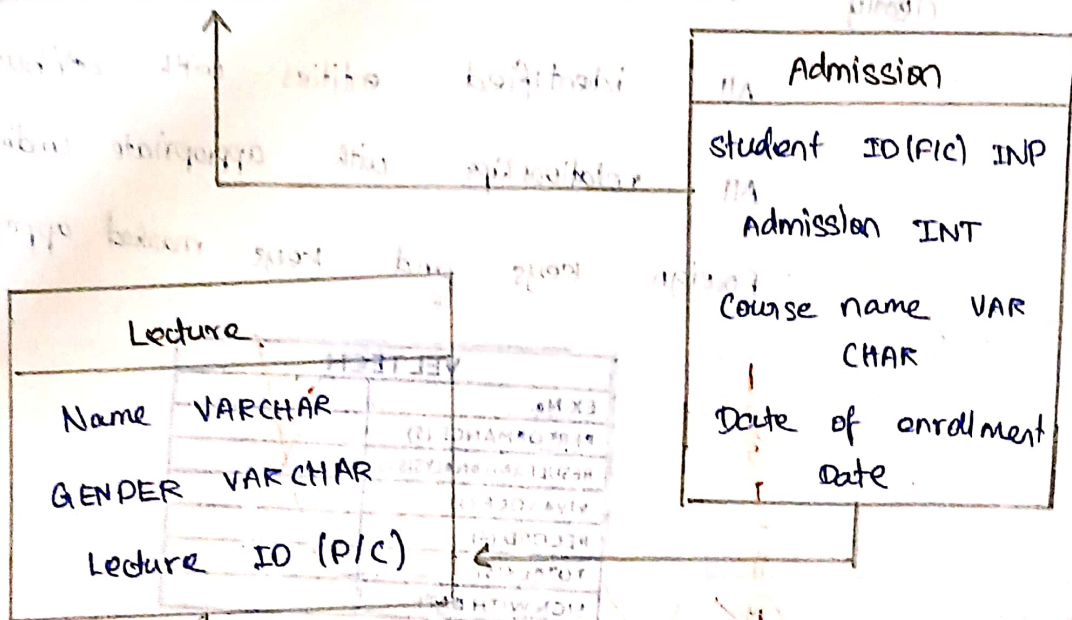 Admission
student ID (F/C) INP
Admission INT
Course name VAR
CHAR
Date of enrollment
Date
Lecture
Name VARCHAR
GENDER VARCHAR
Lecture ID (P/C)